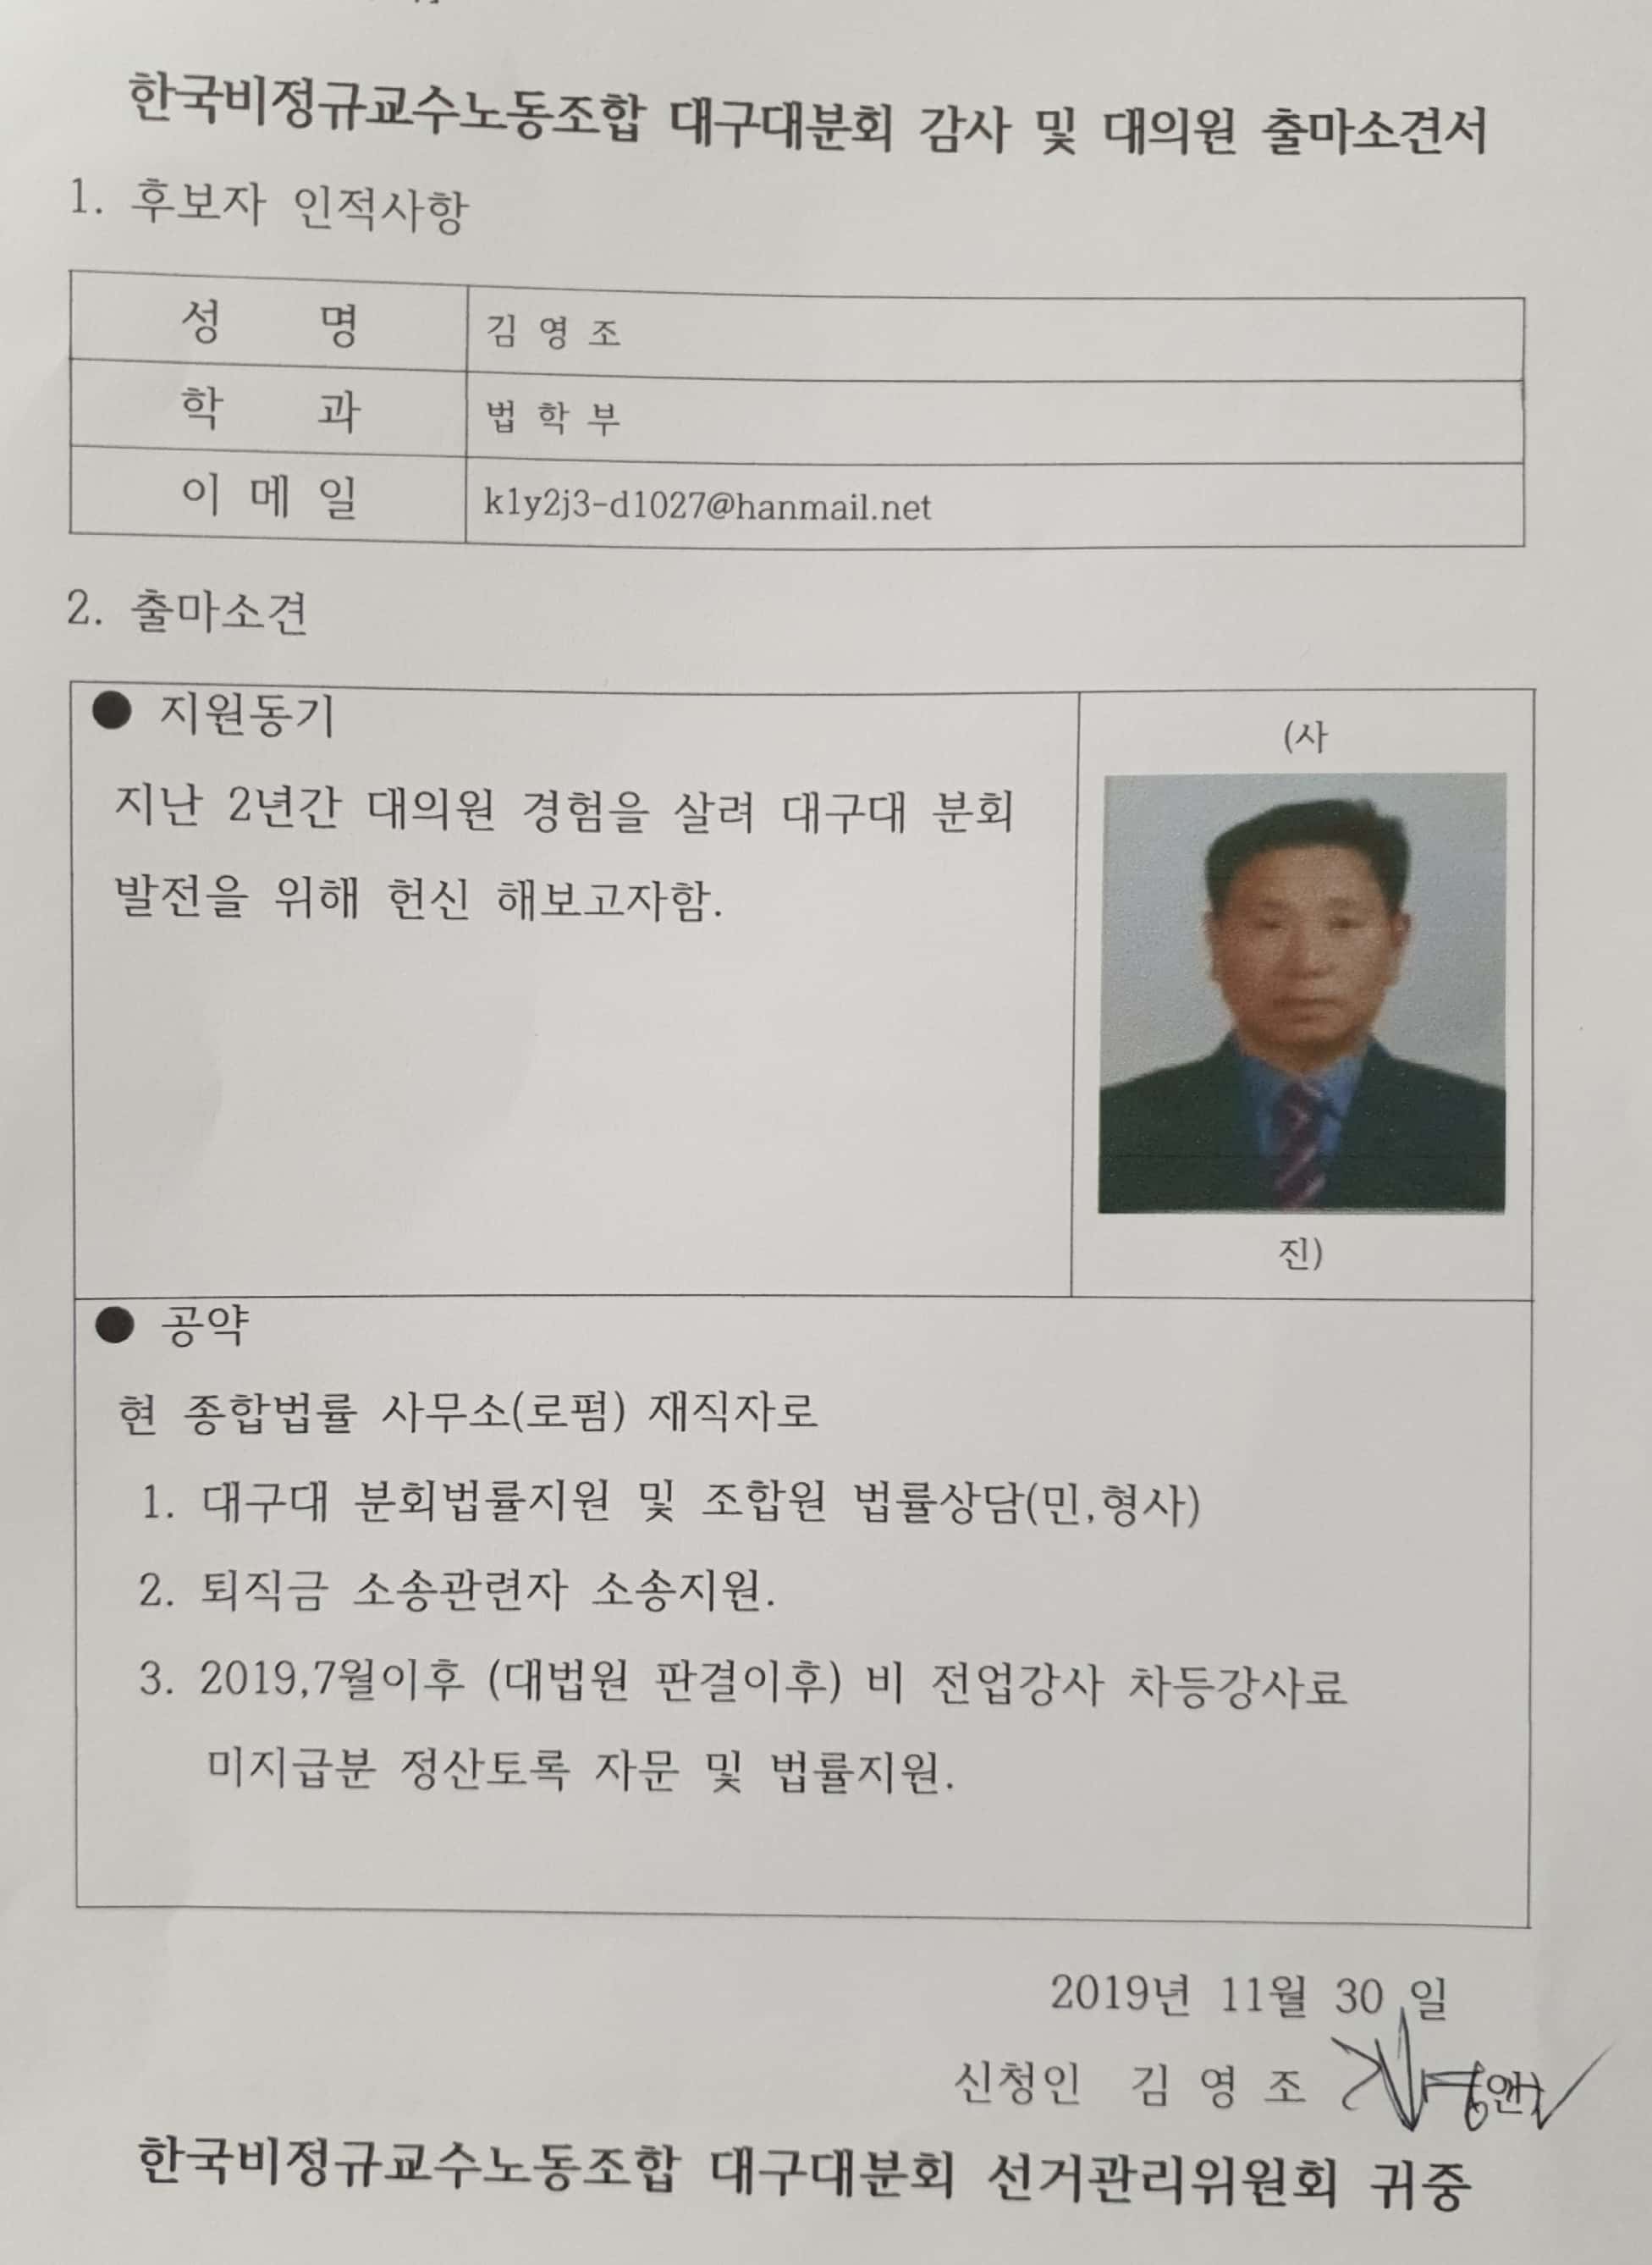 한국비정규교수노동조합 대구대분회 감사 및 대의원 출마소견서
1. 후보자 인적사항
성 명 김 영 조
학 과 법 학 부
이 메 일 k1y2j3-d1027@hanmail.net
2. 출마소견
● 지원동기
지난 2년간 대의원 경험을 살려 대구대 분회
발전을 위해 헌신 해보고자함.
(사
진)
● 공약
현 종합법률 사무소(로펌) 재직자로
1. 대구대 분회법률지원 및 조합원 법률상담(민,형사)
2. 퇴직금 소송관련자 소송지원.
3. 2019,7월이후 (대법원 판결이후) 비 전업강사 차등강사료
미지급분 정산토록 자문 및 법률지원.
2019년 11월 30 일
신청인 김 영 조
한국비정규교수노동조합 대구대분회 선거관리위원회 귀중